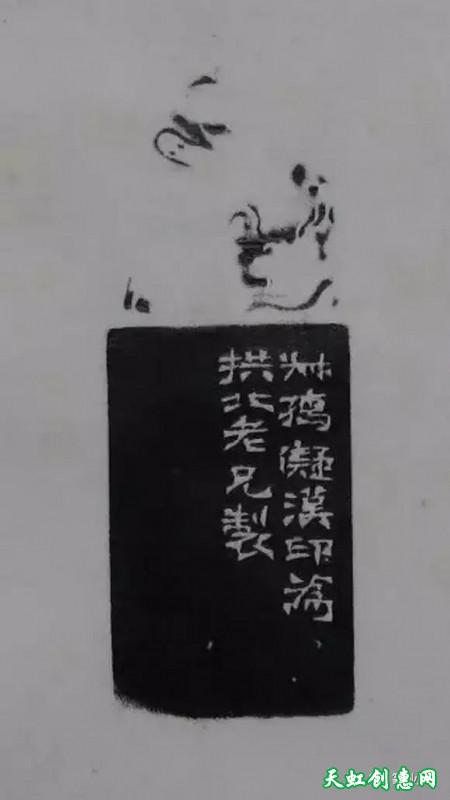 叔孺儗漢印為
拱北老兄製
天虹创意网